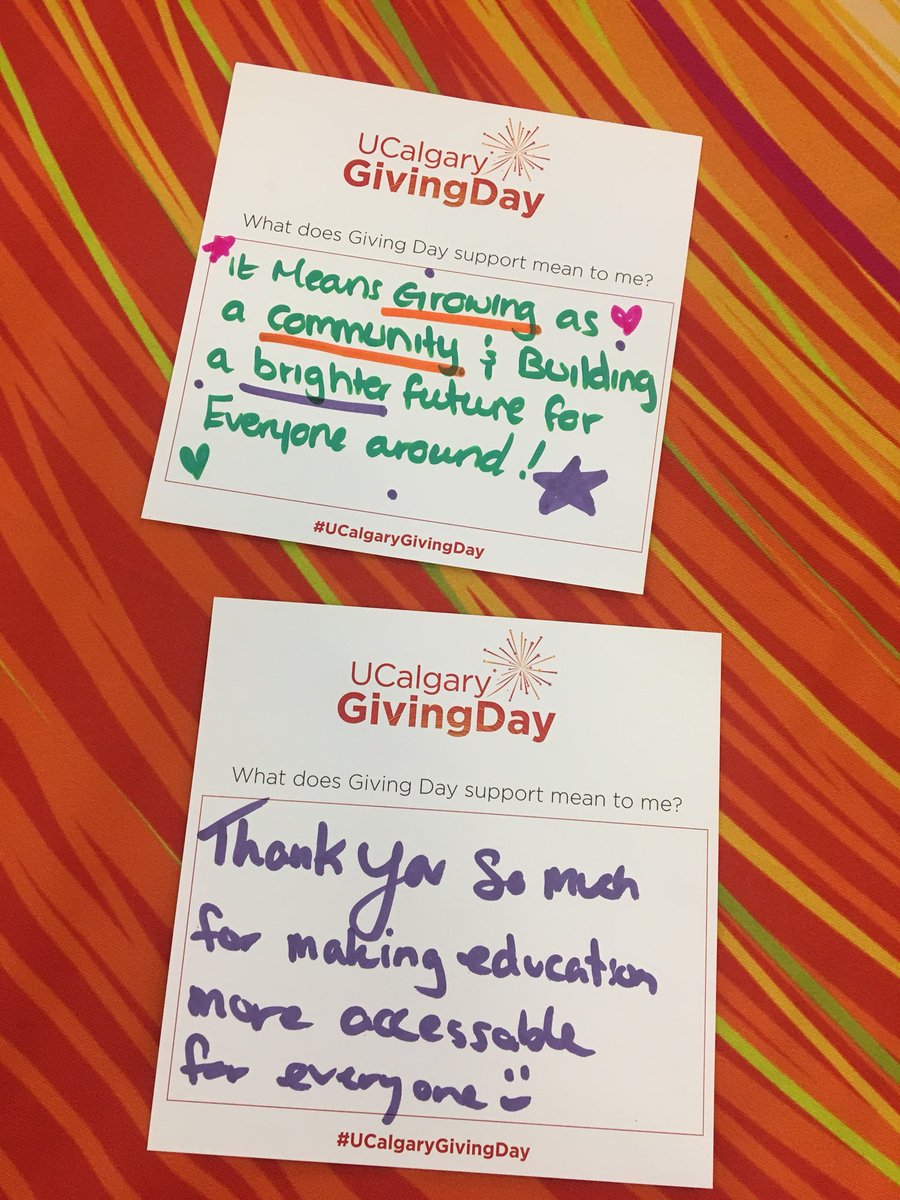 UCalgary
GivingDay
What does Giving Day support mean to me?
It Means Growing as
a community & Building
a brighter future for
Everyone around!
#UCalgaryGivingDay
UCalgary
GivingDay
What does Giving Day support mean to me?
Thank you so much
for making education
more accessable
for everyone
#UCalgaryGivingDay